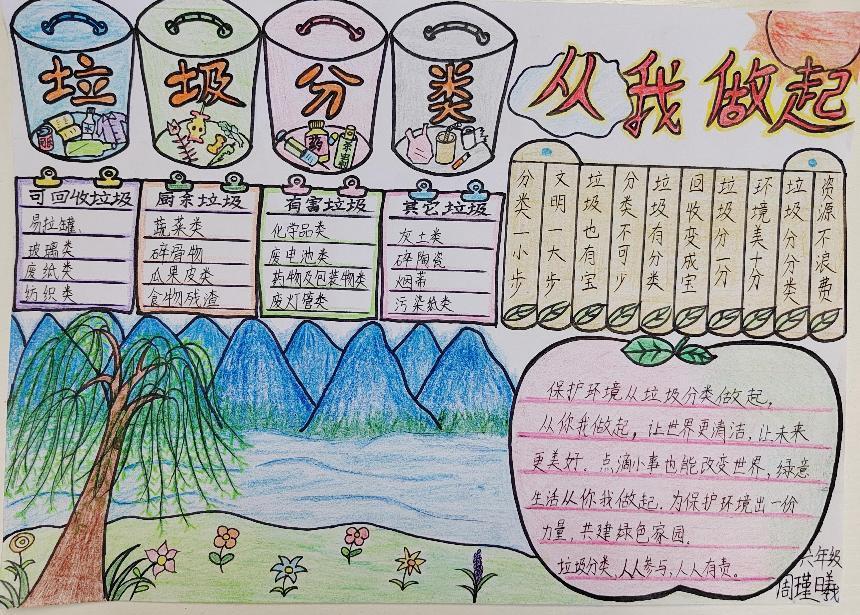 垃圾分类
从我做起
药
可回收垃圾
易拉罐
玻璃类
废纸类
纺织类
厨余垃圾
蔬菜类
碎骨物
瓜果皮类
食物残渣
有害垃圾
化学品类
废电池类
药物及包装物类
废灯管类
其它垃圾
灰土类
碎陶瓷
烟蒂
污染纸类
资源不浪费
垃圾分分类
环境美十分
垃圾分一分
回收变成宝
垃圾有分类
分类不可少
垃圾也有宝
文明一大步
分类一小步
保护环境从垃圾分类做起,
从你我做起,让世界更清洁,让未来
更美好。点滴小事也能改变世界,绿意
生活从你我做起,为保护环境出一份
力量,共建绿色家园。
垃圾分类,人人参与,人人有责。
六年级
周瑾曦